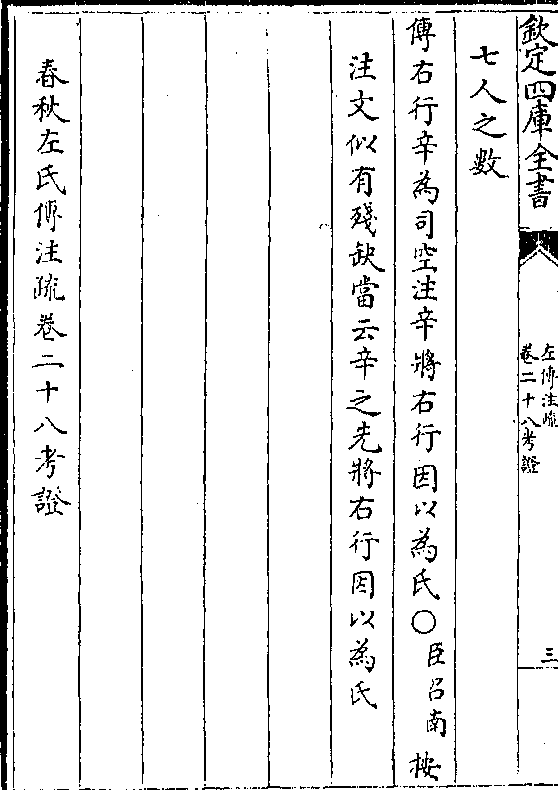 欽定四庫全書
左傳注疏
卷二十八考證
三
七人之數
傳右行辛為司空注辛將右行因以為氏〇臣召南按
注文似有殘缺當云辛之先將右行因以為氏
春秋左氏傳注疏卷二十八考證